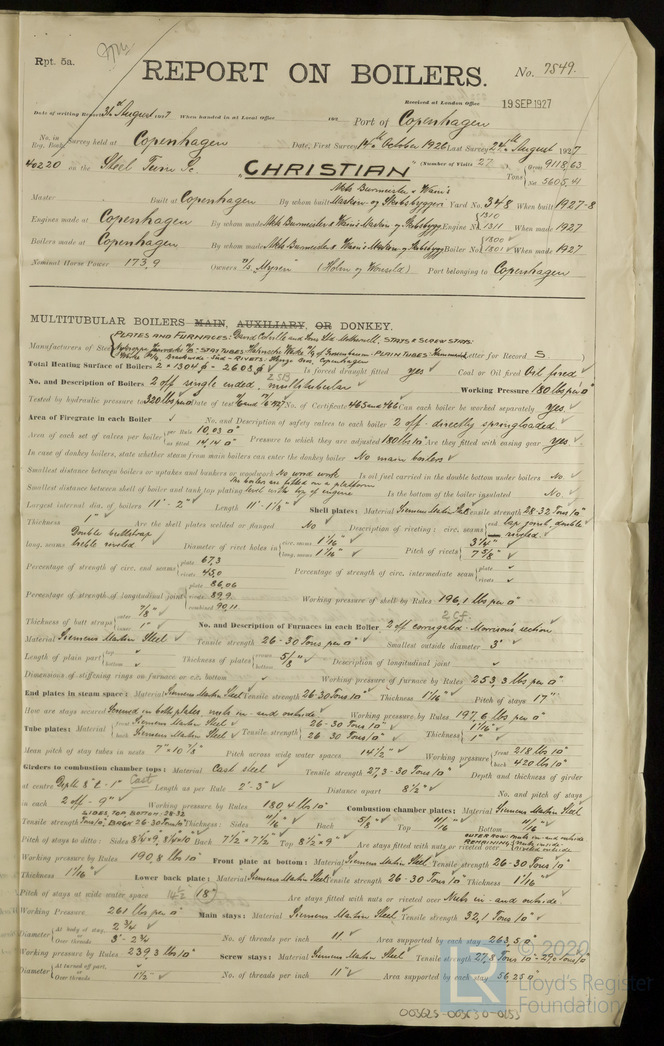 Rpt. 5a.
REPORT ON BOILERS.
No. 7549.
Received at London Office 19 SEP. 1927
Date of writing Report 31st August 1927 When handed in at Local Office 192 Port of Copenhagen
No. in Reg. Book Survey held at Copenhagen Date, First Survey 14th October 1926 Last Survey 24th August 1927
40220 on the Steel "CHRISTIAN" (Number of Visits 22 Tons Gross 9118,63 Net 5605,41
Master Built at Copenhagen By whom built Yard No. 348 When built 1927-8
Engines made at Copenhagen By whom made Engine No. 1310 1311 When made 1927
Boilers made at Copenhagen By whom made Boiler No. 1300 1301 When made 1927
Nominal Horse Power 173,9 Owners Myren Port belonging to Copenhagen
MULTITUBULAR BOILERS MAIN, AUXILIARY, OR DONKEY.
PLATES AND FURNACES: STAYS & SCREW STAYS:
Manufacturers of Steel STAY TUBES: PLAIN TUBES: Letter for Record S
Total Heating Surface of Boilers 2 - 1304 - 2608 Is forced draught fitted yes Coal or Oil fired Oil fired
No. and Description of Boilers 2 off single ended, multitubular 2 SB Working Pressure 180 lbs per □"
Tested by hydraulic pressure to 320 lbs per □" Date of test No. of Certificate 465 and 466 Can each boiler be worked separately yes
Area of Firegrate in each Boiler No. and Description of safety valves to each boiler 2 off directly springloaded
Area of each set of valves per boiler per Rule 10,03 □" as fitted 14,14 □" Pressure to which they are adjusted 180 lbs □" Are they fitted with easing gear yes
In case of donkey boilers, state whether steam from main boilers can enter the donkey boiler No main boilers
Smallest distance between boilers or uptakes and bunkers or woodwork No wood work Is oil fuel carried in the double bottom under boilers No
Smallest distance between shell of boiler and tank top plating The boilers are fitted on a platform level with the top of engine Is the bottom of the boiler insulated No
Largest internal dia. of boilers 11' - 2" Length 11' - 1 1/16" Shell plates: Material Siemens Martin Tensile strength 28-32 Tons □"
Thickness 1" Are the shell plates welded or flanged No Description of riveting: circ. seams end lap joint, double riveted
long. seams Double buttstrap treble riveted Diameter of rivet holes in circ. seams 1 1/16" long. seams 1 1/16" Pitch of rivets 3 1/4" 7 5/8"
Percentage of strength of circ. end seams plate 67,3 rivets 45,0 Percentage of strength of circ. intermediate seam plate rivets
Percentage of strength of longitudinal joint plate 86,06 rivets 89,9 combined 90,11 Working pressure of shell by Rules 196,1 lbs per □"
Thickness of butt straps outer 7/8" inner 1" No. and Description of Furnaces in each Boiler 2 off corrugated Morrison's section 2 Cf.
Material Siemens Martin Steel Tensile strength 26-30 Tons per □" Smallest outside diameter 3'
Length of plain part top bottom Thickness of plates crown bottom 5/8" Description of longitudinal joint
Dimensions of stiffening rings on furnace or c.c. bottom Working pressure of furnace by Rules 253,3 lbs per □"
End plates in steam space: Material Siemens Martin Steel Tensile strength 26-30 Tons □" Thickness 1 1/16" Pitch of stays 17"
How are stays secured Screwed in both plates, nuts in- and outside. Working pressure by Rules 197,6 lbs per □"
Tube plates: Material front Siemens Martin Steel back Siemens Martin Steel Tensile strength 26-30 Tons □" 26-30 Tons □" Thickness 1 1/16" 1"
Mean pitch of stay tubes in nests 7" × 10 7/8" Pitch across wide water spaces 14 1/2" Working pressure front 218 lbs □" back 420 lbs □"
Girders to combustion chamber tops: Material Cast steel Tensile strength 27,3-30 Tons □" Depth and thickness of girder
at centre Length as per Rule 2' - 3" Distance apart 8 1/2" No. and pitch of stays
in each 2 off - 9" Working pressure by Rules 180,4 lbs □" Combustion chamber plates: Material Siemens Martin Steel
SIDES, TOP, BOTTOM: 28-32
Tensile strength Tons □", BACK 26-30 Tons □" Thickness: Sides 11/16" Back 5/8" Top 11/16" Bottom 11/16"
Pitch of stays to ditto: Sides Back 7 1/2" × 7 1/2" Top 8 1/2" × 9" Are stays fitted with nuts or riveted over OUTER ROW: Nuts in- and outside REMAINING: Nuts inside riveted outside
Working pressure by Rules 190,8 lbs □" Front plate at bottom: Material Siemens Martin Steel Tensile strength 26-30 Tons □"
Thickness 1 1/16" Lower back plate: Material Siemens Martin Steel Tensile strength 26-30 Tons □" Thickness 1 1/16"
Pitch of stays at wide water space 14 1/2 (18") Are stays fitted with nuts or riveted over Nuts in- and outside.
Working Pressure 261 lbs per □" Main stays: Material Siemens Martin Steel Tensile strength 32,1 Tons □"
Diameter At body of stay, 2 3/4" Over threads 3" - 2 3/4 No. of threads per inch 11 Area supported by each stay 263,5 □"
Working pressure by Rules 239,3 lbs □" Screw stays: Material Siemens Martin Steel Tensile strength 27,8 Tons □" - 29,0 Tons □"
Diameter At turned off part, Over threads 1 1/2" No. of threads per inch 11 Area supported by each stay 56,25 □"
© 2020
LR Lloyd's Register Foundation
003625-003630-0253